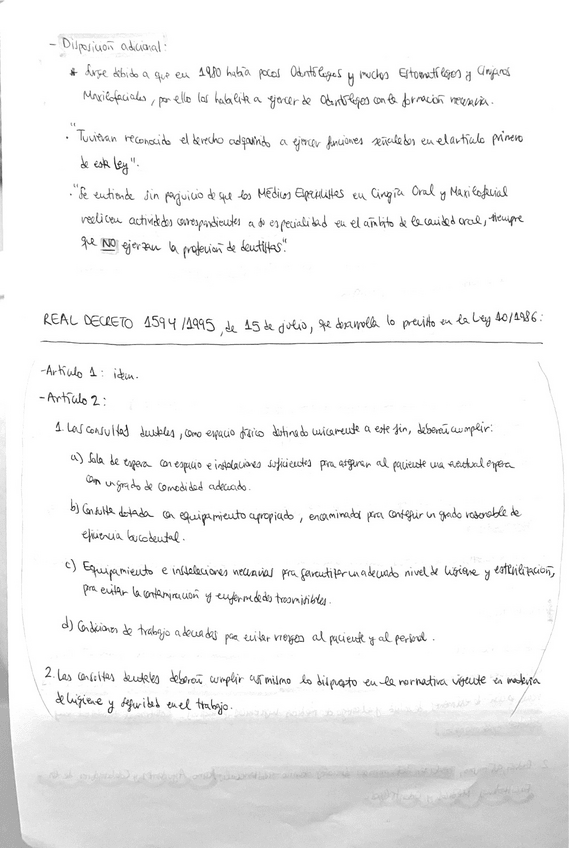 - Disposición adicional:
* Surge debido a que en 1980 había pocos Odontólogos y muchos Estomatólogos y Cirujanos
Maxilofaciales, por ello los habilita a ejercer de Odontólogos con la formación necesaria.
· "Tuvieran reconocido el derecho adquirido a ejercer funciones señaladas en el artículo primero
de esta Ley".
· "Se entiende sin perjuicio de que los Médicos Especialistas en Cirugía Oral y Maxilofacial
realicen actividades correspondientes a su especialidad en el ámbito de la cavidad oral, siempre
que NO ejerzan la profesión de dentistas."
REAL DECRETO 1594/1995, de 15 de julio, que desarrolla lo previsto en la Ley 10/1986:
- Artículo 1: idem.
- Artículo 2:
1. Las consultas dentales, como espacio físico destinado unicamente a este fin, deberán cumplir:
a) Sala de espera con espacio e instalaciones suficientes para asegurar al paciente una eventual espera
con un grado de comodidad adecuado.
b) Consulta dotada con equipamiento apropiado, encaminador para conseguir un grado razonable de
eficiencia bucodental.
c) Equipamiento e instalaciones necesarias para garantizar un adecuado nivel de higiene y esterilización,
para evitar la contaminación y enfermedades trasmisibles.
d) Condiciones de trabajo adecuadas para evitar riesgos al paciente y al personal.
2. Las consultas dentales deberán cumplir asímismo lo dispuesto en la normativa vigente en materia
de higiene y seguridad en el trabajo.